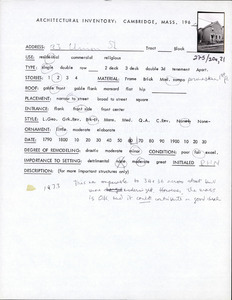 ARCHITECTURAL INVENTORY: CAMBRIDGE, MASS, 196
ADDRESS: 93 Tract Block
USE: residential commercial religious 275/20a,51
TYPE: single double row 2 deck 3 deck double 3d tenement Apart.
STORIES: 1 2 3 4 MATERIAL: Frame Brick Met. compo
ROOF: gable front gable flank mansard flat hip
PLACEMENT: narrow to street broad to street square
ENTRANCE: flank front side
STYLE: L.Geo. Grk.Rev. Brkt. Mans. Med. Q.A. C.Rev. None
ORNAMENT: little moderate elaborate
DATE: 1790 1800 10 20 30 40 50 60 70 80 90 1900 10 20 30
DEGREE OF REMODELING: drastic moderate minor CONDITION: poor fair excel.
IMPORTANCE TO SETTING: detrimental none moderate great INITIALED
DESCRIPTION: (for more important structures only)
1973 This is comparable to 34-36 across street but
was However, the scale
is OK, and it could contribute - good